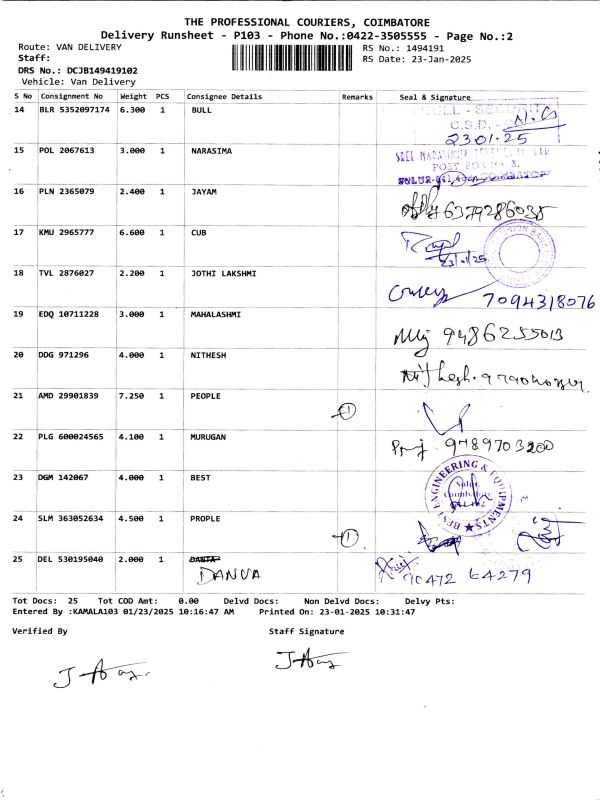 THE PROFESSIONAL COURIERS, COIMBATORE
Delivery Runsheet - P103 - Phone No.:0422-3505555 - Page No.:2
Route: VAN DELIVERY RS No.: 1494191
Staff: RS Date: 23-Jan-2025
DRS No.: DCJB149419102
Vehicle: Van Delivery
S No Consignment No Weight PCS Consignee Details Remarks Seal & Signature
14 BLR 5352097174 6.300 1 BULL
C.S.D.
23 01.25
15 POL 2067613 3.000 1 NARASIMA
POST BOX
SULUR
16 PLN 2365079 2.400 1 JAYAM 6379286035
17 KMU 2965777 6.600 1 CUB
23/1/25
18 TVL 2876027 2.200 1 JOTHI LAKSHMI
7094318076
19 EDQ 10711228 3.000 1 MAHALASHMI
9486255013
20 DDG 971296 4.000 1 NITHESH
Nithesh.
21 AMD 29901839 7.250 1 PEOPLE 1
22 PLG 600024565 4.100 1 MURUGAN 9789703200
23 DGM 142067 4.000 1 BEST BEST ENGINEERING & EQUIPMENTS
24 SLM 363052634 4.500 1 PROPLE 1
25 DEL 530195040 2.000 1 DANTA
DANVA 90472 64279
Tot Docs: 25 Tot COD Amt: 0.00 Delvd Docs: Non Delvd Docs: Delvy Pts:
Entered By :KAMALA103 01/23/2025 10:16:47 AM Printed On: 23-01-2025 10:31:47
Verified By Staff Signature